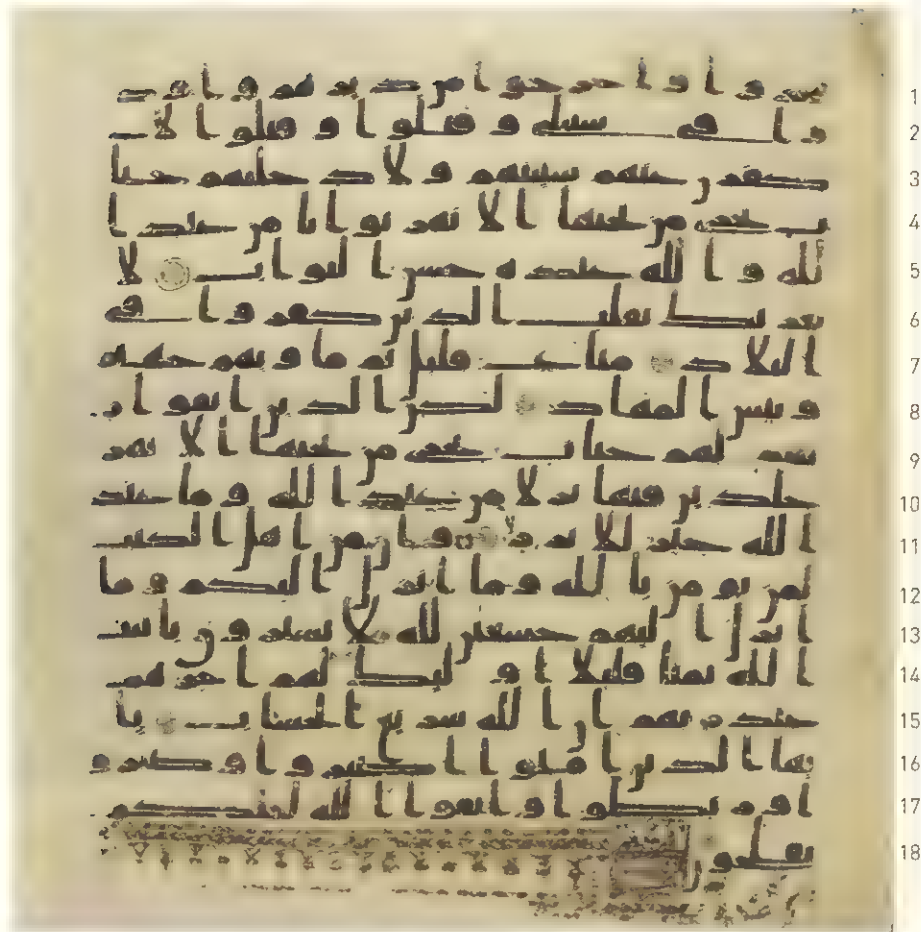 1 جروا واخرجوا من ديرهم واوذ
2 وا في سبيلي وقتلوا وقتلوا لا
3 كفرن عنهم سيتهم ولادخلنهم جنا
4 ت تجري من تحتها الانهر ثوابا من عند ا
5 لله والله عنده حسن الثواب لا
6 يغرنك تقلب الذين كفروا في
7 البلاد متاع قليل ثم ماويهم جهنم
8 وبيس المهاد لكن الذين اتقوا ر
9 بهم لهم جنات تجري من تحتها الانهر
10 خلدين فيها نزلا من عند الله وما عند
11 الله خير للابرار وان من اهل الكتب
12 لمن يومن بالله وما انزل اليكم وما
13 انزل اليهم خشعين لله لا يشترون بايت
14 الله ثمنا قليلا اوليك لهم اجرهم
15 عند ربهم ان الله سريع الحساب يا
16 يها الذين امنوا اصبروا وصابروا و
17 رابطوا واتقوا الله لعلكم
18 تفلحون